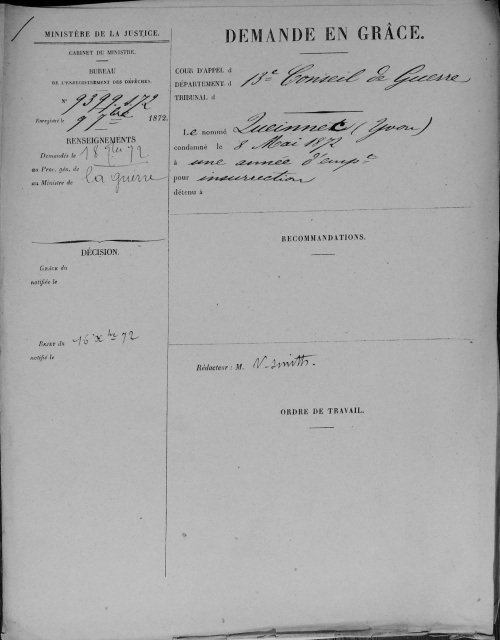 MINISTÈRE DE LA JUSTICE.
CABINET DU MINISTRE.
BUREAU
DE L'ENREGISTREMENT DES DÉPÊCHES.
N° 9399.S.72
Enregistré le 9 7bre 1872.
RENSEIGNEMENTS
Demandés le 18 7bre 72
au Proc. gén. de
au Ministre de la guerre
DÉCISION.
GRÂCE du
notifiée le
REJET du 16 Xbre 72
notifié le
DEMANDE EN GRÂCE.
COUR D'APPEL d
DÉPARTEMENT d 13e Conseil de Guerre
TRIBUNAL d
Le nommé Queinnec (Yvon)
condamné le 8 Mai 1872
à une année d'empt
pour insurrection
détenu à
RECOMMANDATIONS.
Rédacteur : M. V. Smith.
ORDRE DE TRAVAIL.